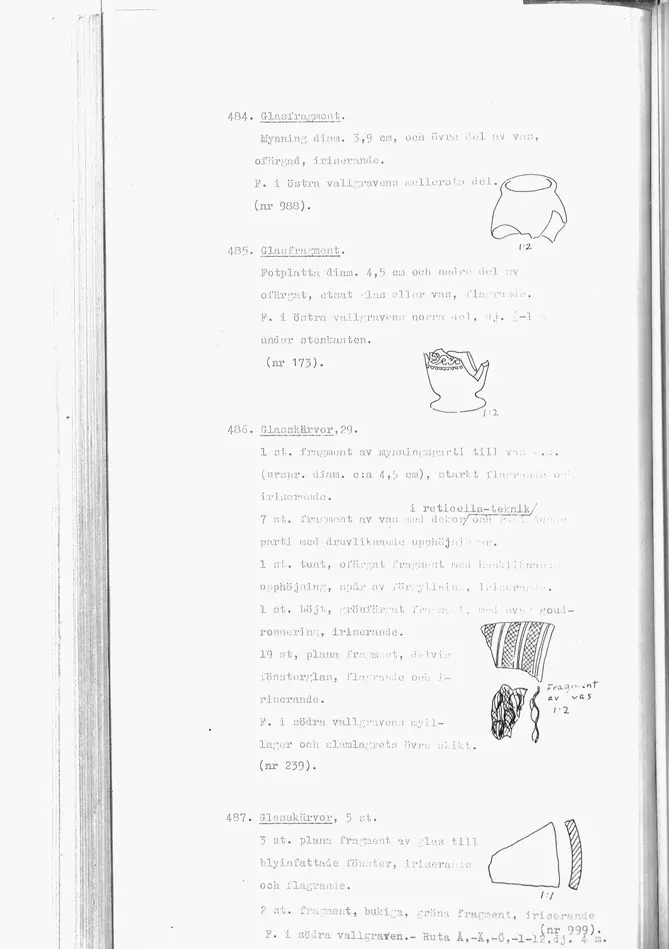 484. Glasfragment.
Mynning diam. 3,9 cm, och övre del av vas,
ofärgad, iriserande.
F. i östra vallgravens mellersta del.
(nr 988).
1:2
485. Glasfragment.
Fotplatta diam. 4,5 cm och nedre del av
ofärgat, etsat glas eller vas, flagrande.
F. i östra vallgravens norra del, dj.
under stenkanten.
(nr 173).
1:2
486. Glasskärvor, 29.
1 st. fragment av mynningsparti till vas
(urspr. diam. c:a 4,5 cm), starkt flagrande och
iriserande.
i reticella-teknik/
7 st. fragment av vas med dekor/och
parti med druvliknande upphöjningar.
1 st. tunt, ofärgat fragment med
upphöjning, spår av förgyllning, iriserande.
1 st. böjt, grönfärgat fragment, med goud-
ronnering, iriserande.
19 st, plana fragment, delvis
fönsterglas, flagrande och i-
riserande.
Fragment
av vas
1:2
F. i södra vallgravens myll-
lager och slamlagrets övre skikt.
(nr 239).
487. Glasskärvor, 5 st.
3 st. plana fragment av glas till
blyinfattade fönster, iriserande
och flagrande.
1:1
2 st. fragment, bukiga, gröna fragment, iriserande
(nr 999).
F. i södra vallgraven.- Ruta Ä,-X,-Ö,-1-12,dj. 4 m.